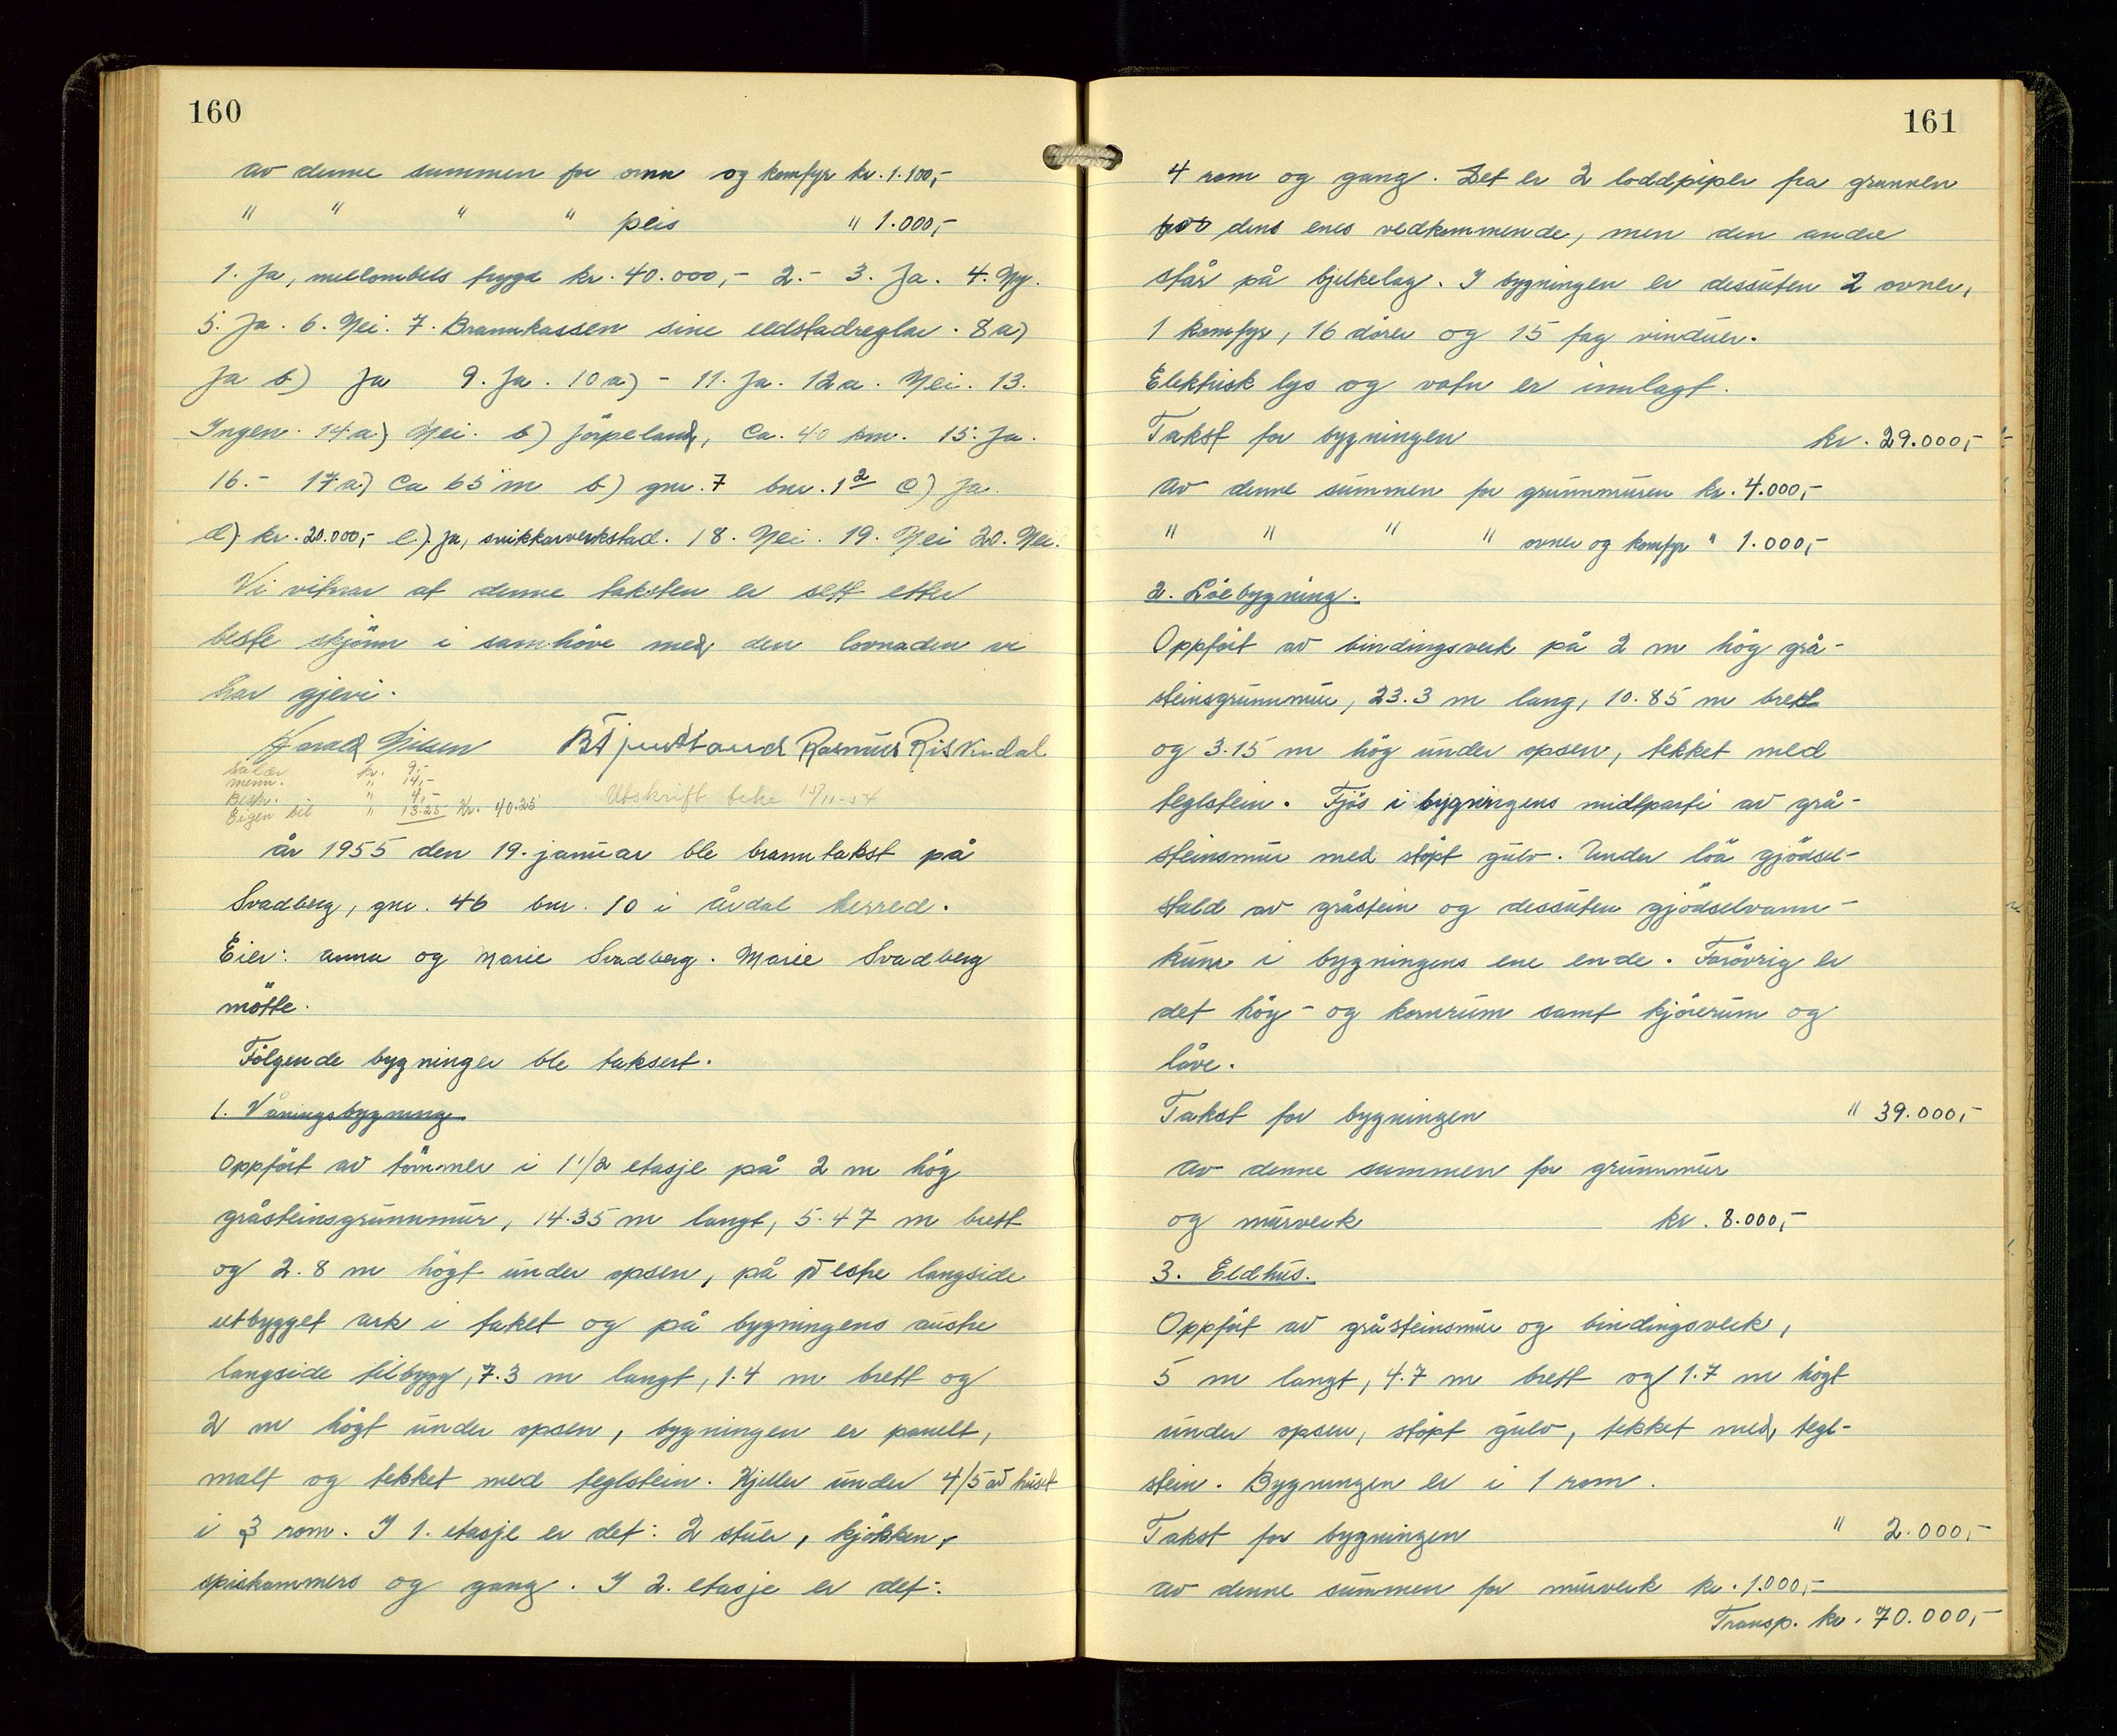 160
av denne summen for omn og komfyr kr. 1.100,-
" " " " peis " 1.000,-
1. Ja, mellombels trygd kr. 40.000,- 2.- 3. Ja. 4. Ny.
5. Ja. 6. Nei. 7. Brannkassen sine eldstadreglar. 8a)
Ja b) Ja 9. Ja. 10a) - 11. Ja. 12a. Nei. 13.
Ingen. 14a) Nei. b) Jörpeland, ca. 40 km. 15. Ja.
16.- 17a) Ca 65 m b) gnr. 7 bnr. 12 c) Ja.
d) kr. 20.000,- e) Ja, snikkarverkstad. 18. Nei. 19. Nei 20. Nei.
Vi vitnar at denne taksten er sett etter
beste skjönn i samhöve med den lovnaden vi
har gjevi.
Harald Nilsen B Tjentland Rasmus Riskedal
Salær kr. 9,-
menn. " 14,-
Beskr. " 4,-
Eigen bil " 13.25 Kr. 40.25 Utskrift
år 1955 den 19. januar ble branntakst på
Svadberg, gnr. 46 bnr. 10 i Årdal herred.
Eier: Anna og Marie Svadberg. Marie Svadberg
mötte.
Fölgende bygninger ble taksert.
1. Våningsbygning
Oppfört av tömmer i 1 1/2 etasje på 2 m hög
gråsteinsgrunnmur, 14.35 m langt, 5.47 m brett
og 2.8 m högt under opsen, på vestre langside
utbygget ark i taket og på bygningens austre
langside tilbygg, 7.3 m langt, 1.4 m brett og
2 m högt under opsen, bygningen er panelt,
malt og tekket med teglstein. Kjeller under 4/5 av huset
i 3 rom. I 1. etasje er det: 2 stuer, kjökken,
spiskammers og gang. I 2. etasje er det:
161
4 rom og gang. Det er 2 loddpiper fra grunnen
for dens enes vedkommende, men den andre
står på bjelkelag. I bygningen er dessuten 2 ovner,
1 komfyr, 16 dörer og 15 fag vinduer.
Elektrisk lys og vatn er innlagt.
Takst for bygningen kr. 29.000,-
av denne summen for grunnmuren kr. 4.000,-
" " " " ovner og komfyr " 1.000,-
2. Löebygning.
Oppfört av bindingsverk på 2 m hög grå-
steinsgrunnmur, 23.3 m lang, 10.85 m bred
og 3.15 m hög under opsen, tekket med
teglstein. Fjös i bygningens midtparti av grå-
steinsmur med stöpt gulv. Under löa gjödsel-
stald av gråstein og dessuten gjödselvann-
kum i bygningens ene ende. Forövrig er
det höy- og kornrum samt kjörerum og
låve.
Takst for bygningen " 39.000,-
av denne summen for grunnmur
og murverk kr. 8.000,-
3. Eldhus.
Oppfört av gråsteinsmur og bindingsverk,
5 m langt, 4.7 m brett og 1.7 m högt
under opsen, stöpt gulv, tekket med tegl-
stein. Bygningen er i 1 rom.
Takst for bygningen " 2.000,-
av denne summen for murverk kr. 1.000,-
Transp. kr. 70.000,-